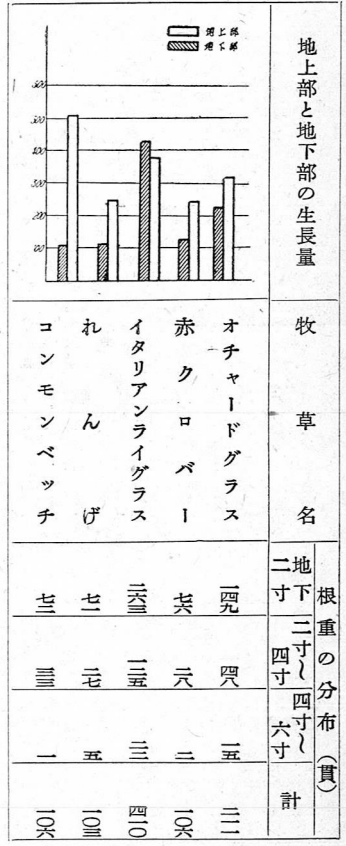 地上部と地下部の生長量
地上部
地下部
500
400
300
200
100
牧草名
根重の分布(貫)
地下二寸
二寸〜四寸
四寸〜六寸
計
オチャードグラス 一四九 四八 一五 二一一
赤クロバー 七六 二八 二 一〇六
イタリアンライグラス 二六三 一二五 二二 四一〇
れんげ 七一 二七 五 一〇三
コンモンベッチ 七三 三三 一 一〇六